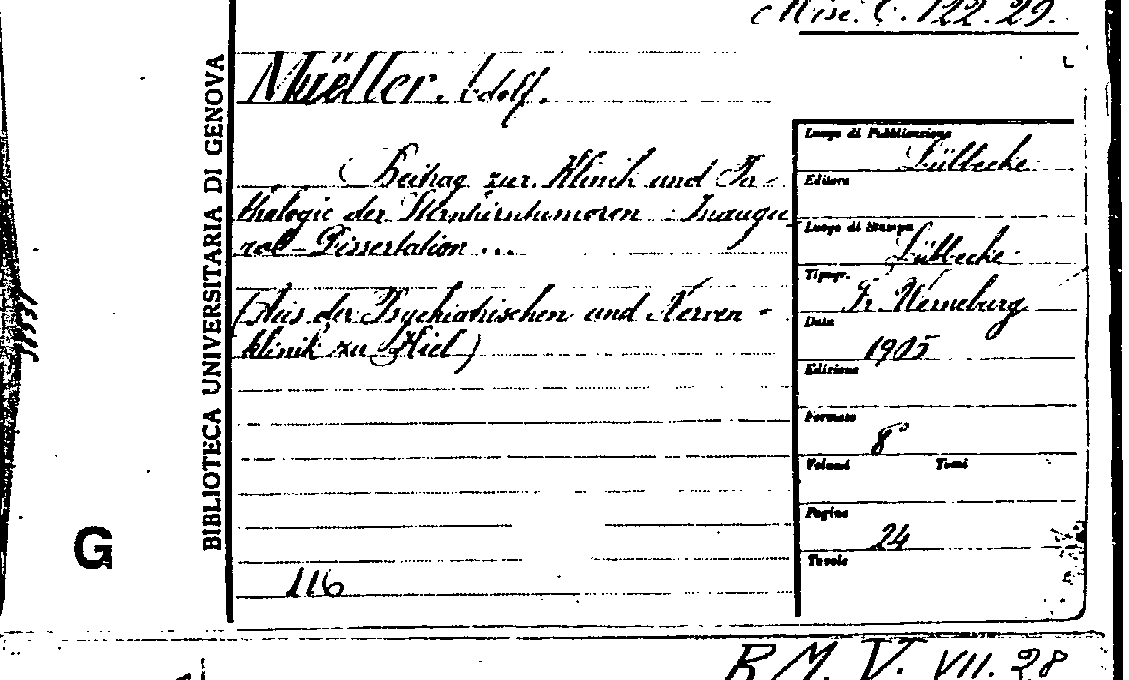 Misc. C. 122.29.
BIBLIOTECA UNIVERSITARIA DI GENOVA
Müeller. Adolf.
Beitrag zur Klinik und Pa-
thologie der Stirnhirntumoren - Inaugu-
ral-Dissertation ...
(Aus der Psychiatrischen und Nerven-
klinik zu Kiel)
116
Luogo di Pubblicazione
Lübbecke
Editore
Luogo di Stampa
Lübbecke
Tipogr.
Fr. Werneburg
Data
1905
Edizione
Formato
8°
Volumi Tomi
Pagine
24
Tavole
G
B.M. V. VII. 28